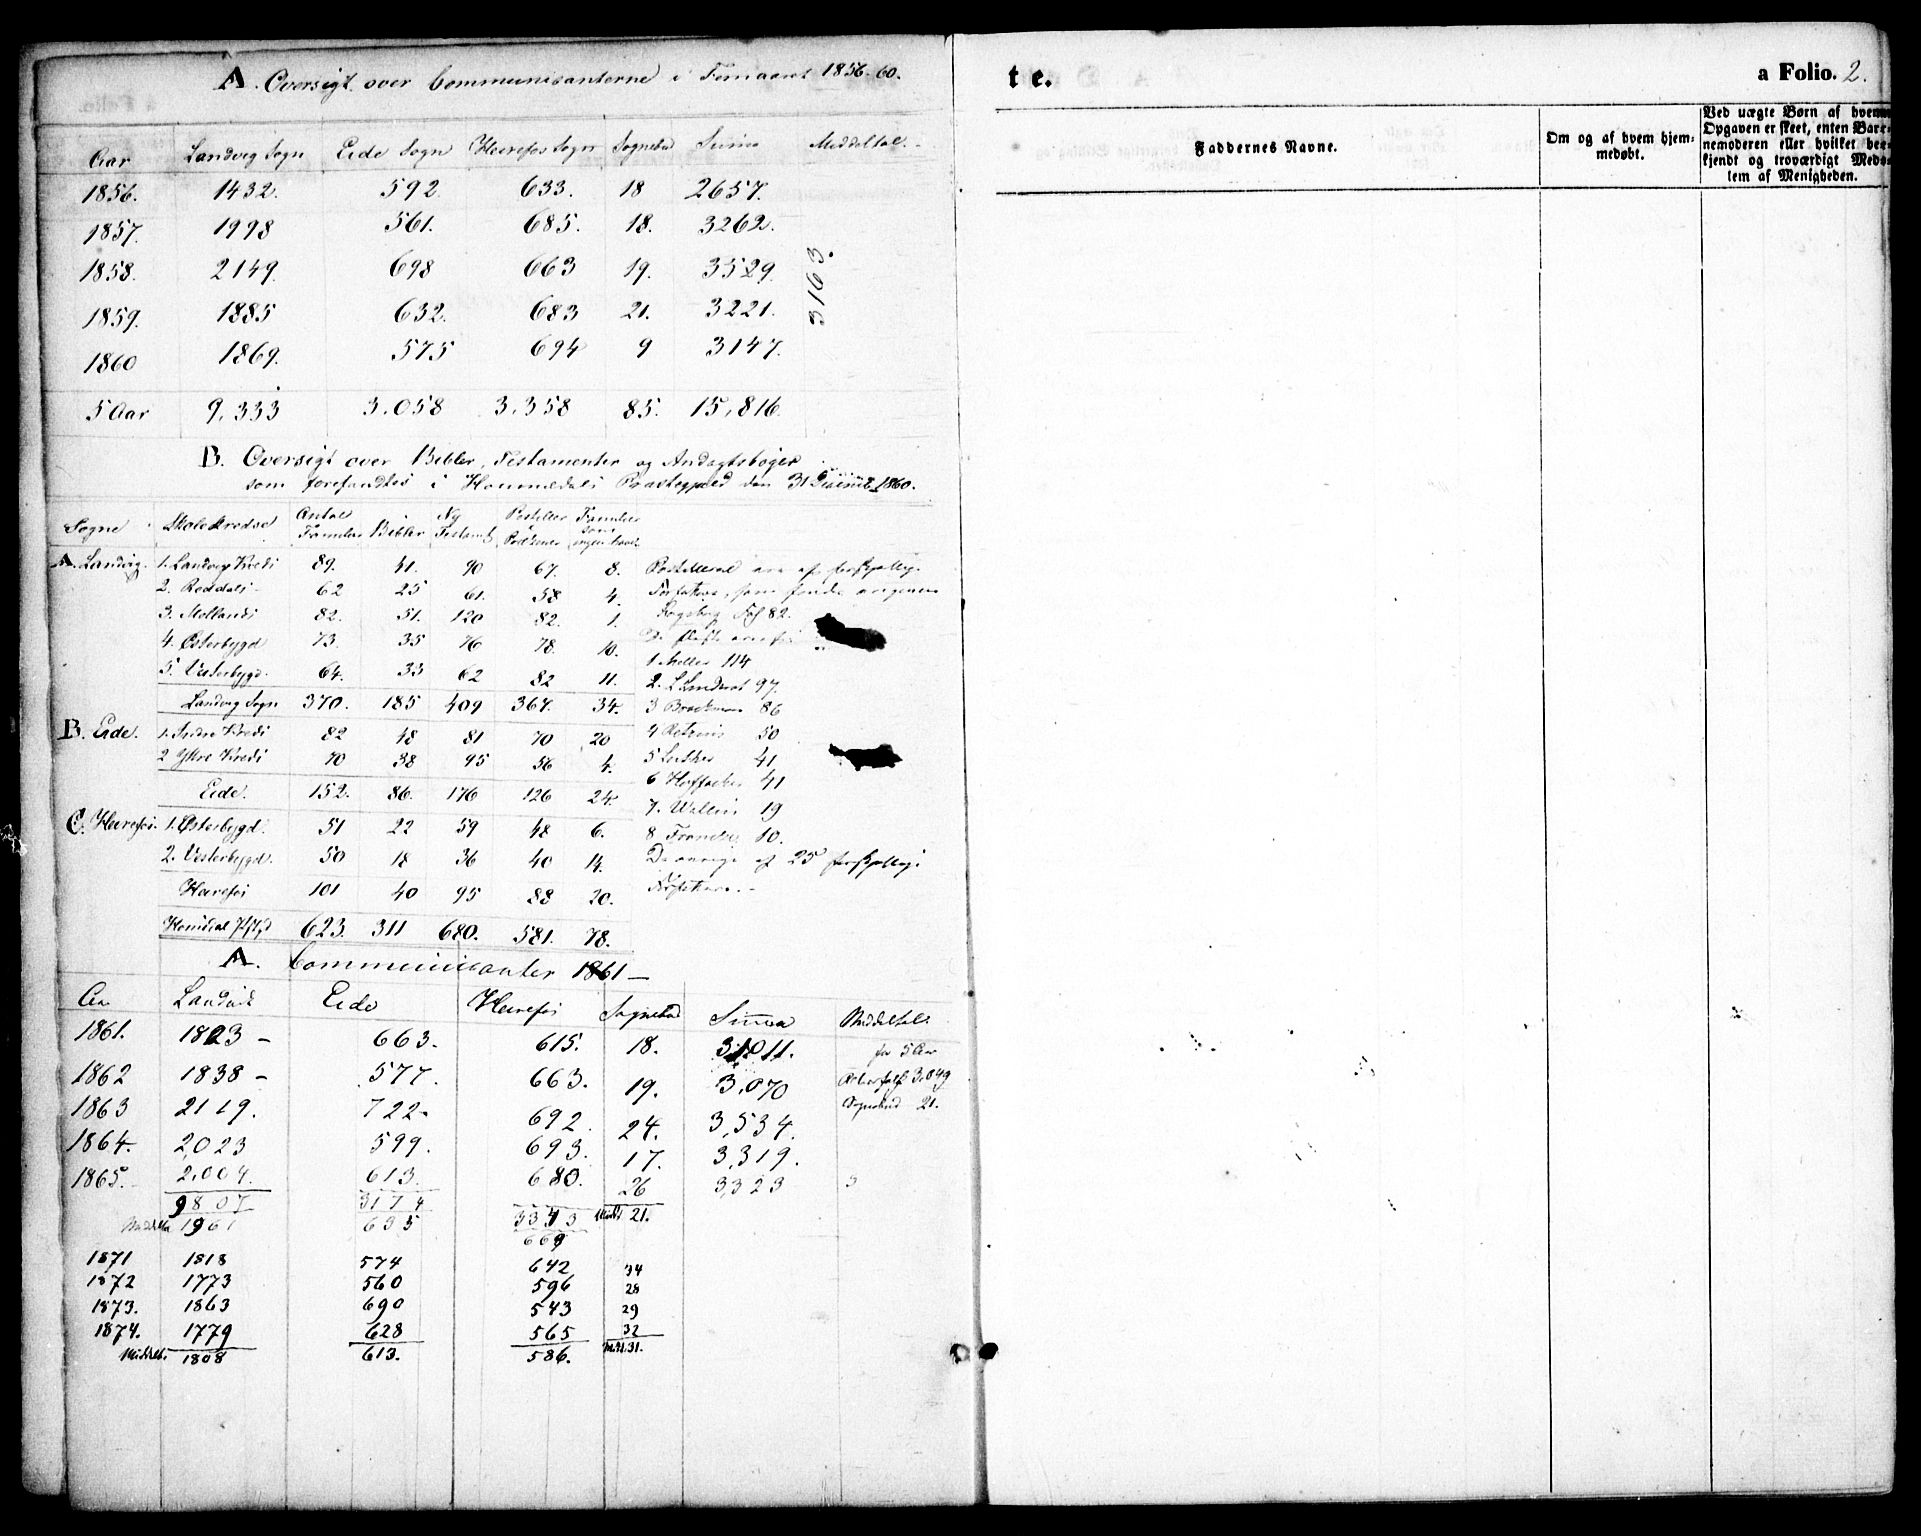 A. Oversigt over Communicanterne i Femaaret 1856-60.
Aar Landvig Sogn Eide Sogn Heirefos Sogn Sognebud Suma Middeltal.
1856. 1432. 592 633. 18 2657.
1857. 1998 561. 685. 18. 3262.
1858. 2149. 698 663 19. 3529.
1859. 1885 632. 683 21. 3221.
1860 1869. 575 694 9 3147.
3163.
5 Aar 9,333 3.058 3.358 85. 15,816.
B. Oversigt over Bibler, Testamenter og Andagtsbøger
som forefandtes i Hommedals Præstegjeld den 31 Decemb. 1860.
Sogne Skolekredse Antal Familier Bibler Ny Testamt Postiller Familier som ingen have
A. Landvig. 1. Landvigs Kreds 89. 41. 90 67. 8.
2. Reddals 62 25 61. 58 4.
3. Mollands 82. 51. 120 82. 1.
4. Østerbygd 73. 35 76 78. 10.
5. Vesterbygd. 64. 33 62 82 11.
Landvig Sogn 370. 185 409 367. 34.
B. Eide. 1. Indre Kreds 82 48 81 70 20
2 Ydre Kreds 70 38 95 56 4.
Eide. 152. 86. 176 126 24.
C. Heirefos. 1. Østerbygd. 51 22 59 48 6.
2. Vesterbygd. 50 18 36 40 14.
Heirefos 101 40 95 88 20.
623. 311 680. 581. 78.
Postillerne ere af forskjellige
Forfattere, som findes angivne
Fol 82.
De fleste ere fra
1 Møller 114
2. Linderot 97.
3 Brockman 86
4 50
5 Luther 41
6 Hoffacker 41
7. Wallin 19
8 Francke 10.
De øvrige af 25 forskjellige
Forfattere. -
A. Communicanter 1861 -
Aar Landvik Eide Heirefos Sognebud Suma Middeltal.
1861. 1823 - 663. 615. 18. 3,011. for 5 Aar
1862 1838 - 577. 663. 19. 3,070 3,049
1863 2119. 722. 692. 24. 3,534. Sognebud 21.
1864. 2,023 599. 693. 17. 3,319.
1865. 2.004. 613. 680. 26 3,323
9807 3174 3343 Midd 21.
Middelta 1961 635 669
1871 1818 574 642 34
1872 1773 560 596 28
1873. 1863 690 543 29
1874. 1779 628 565 32
Middelt. 1808 613. 586. Mid. 31.
te.
a Folio. 2.
Faddernes Navne.
Om og af hvem hjem-
medøbt.
Ved uægte Børn af hvem
Opgaven er skeet, enten Bar-
nemoderen eller hvilket be-
kjendt og troværdigt Med-
lem af Menigheden.